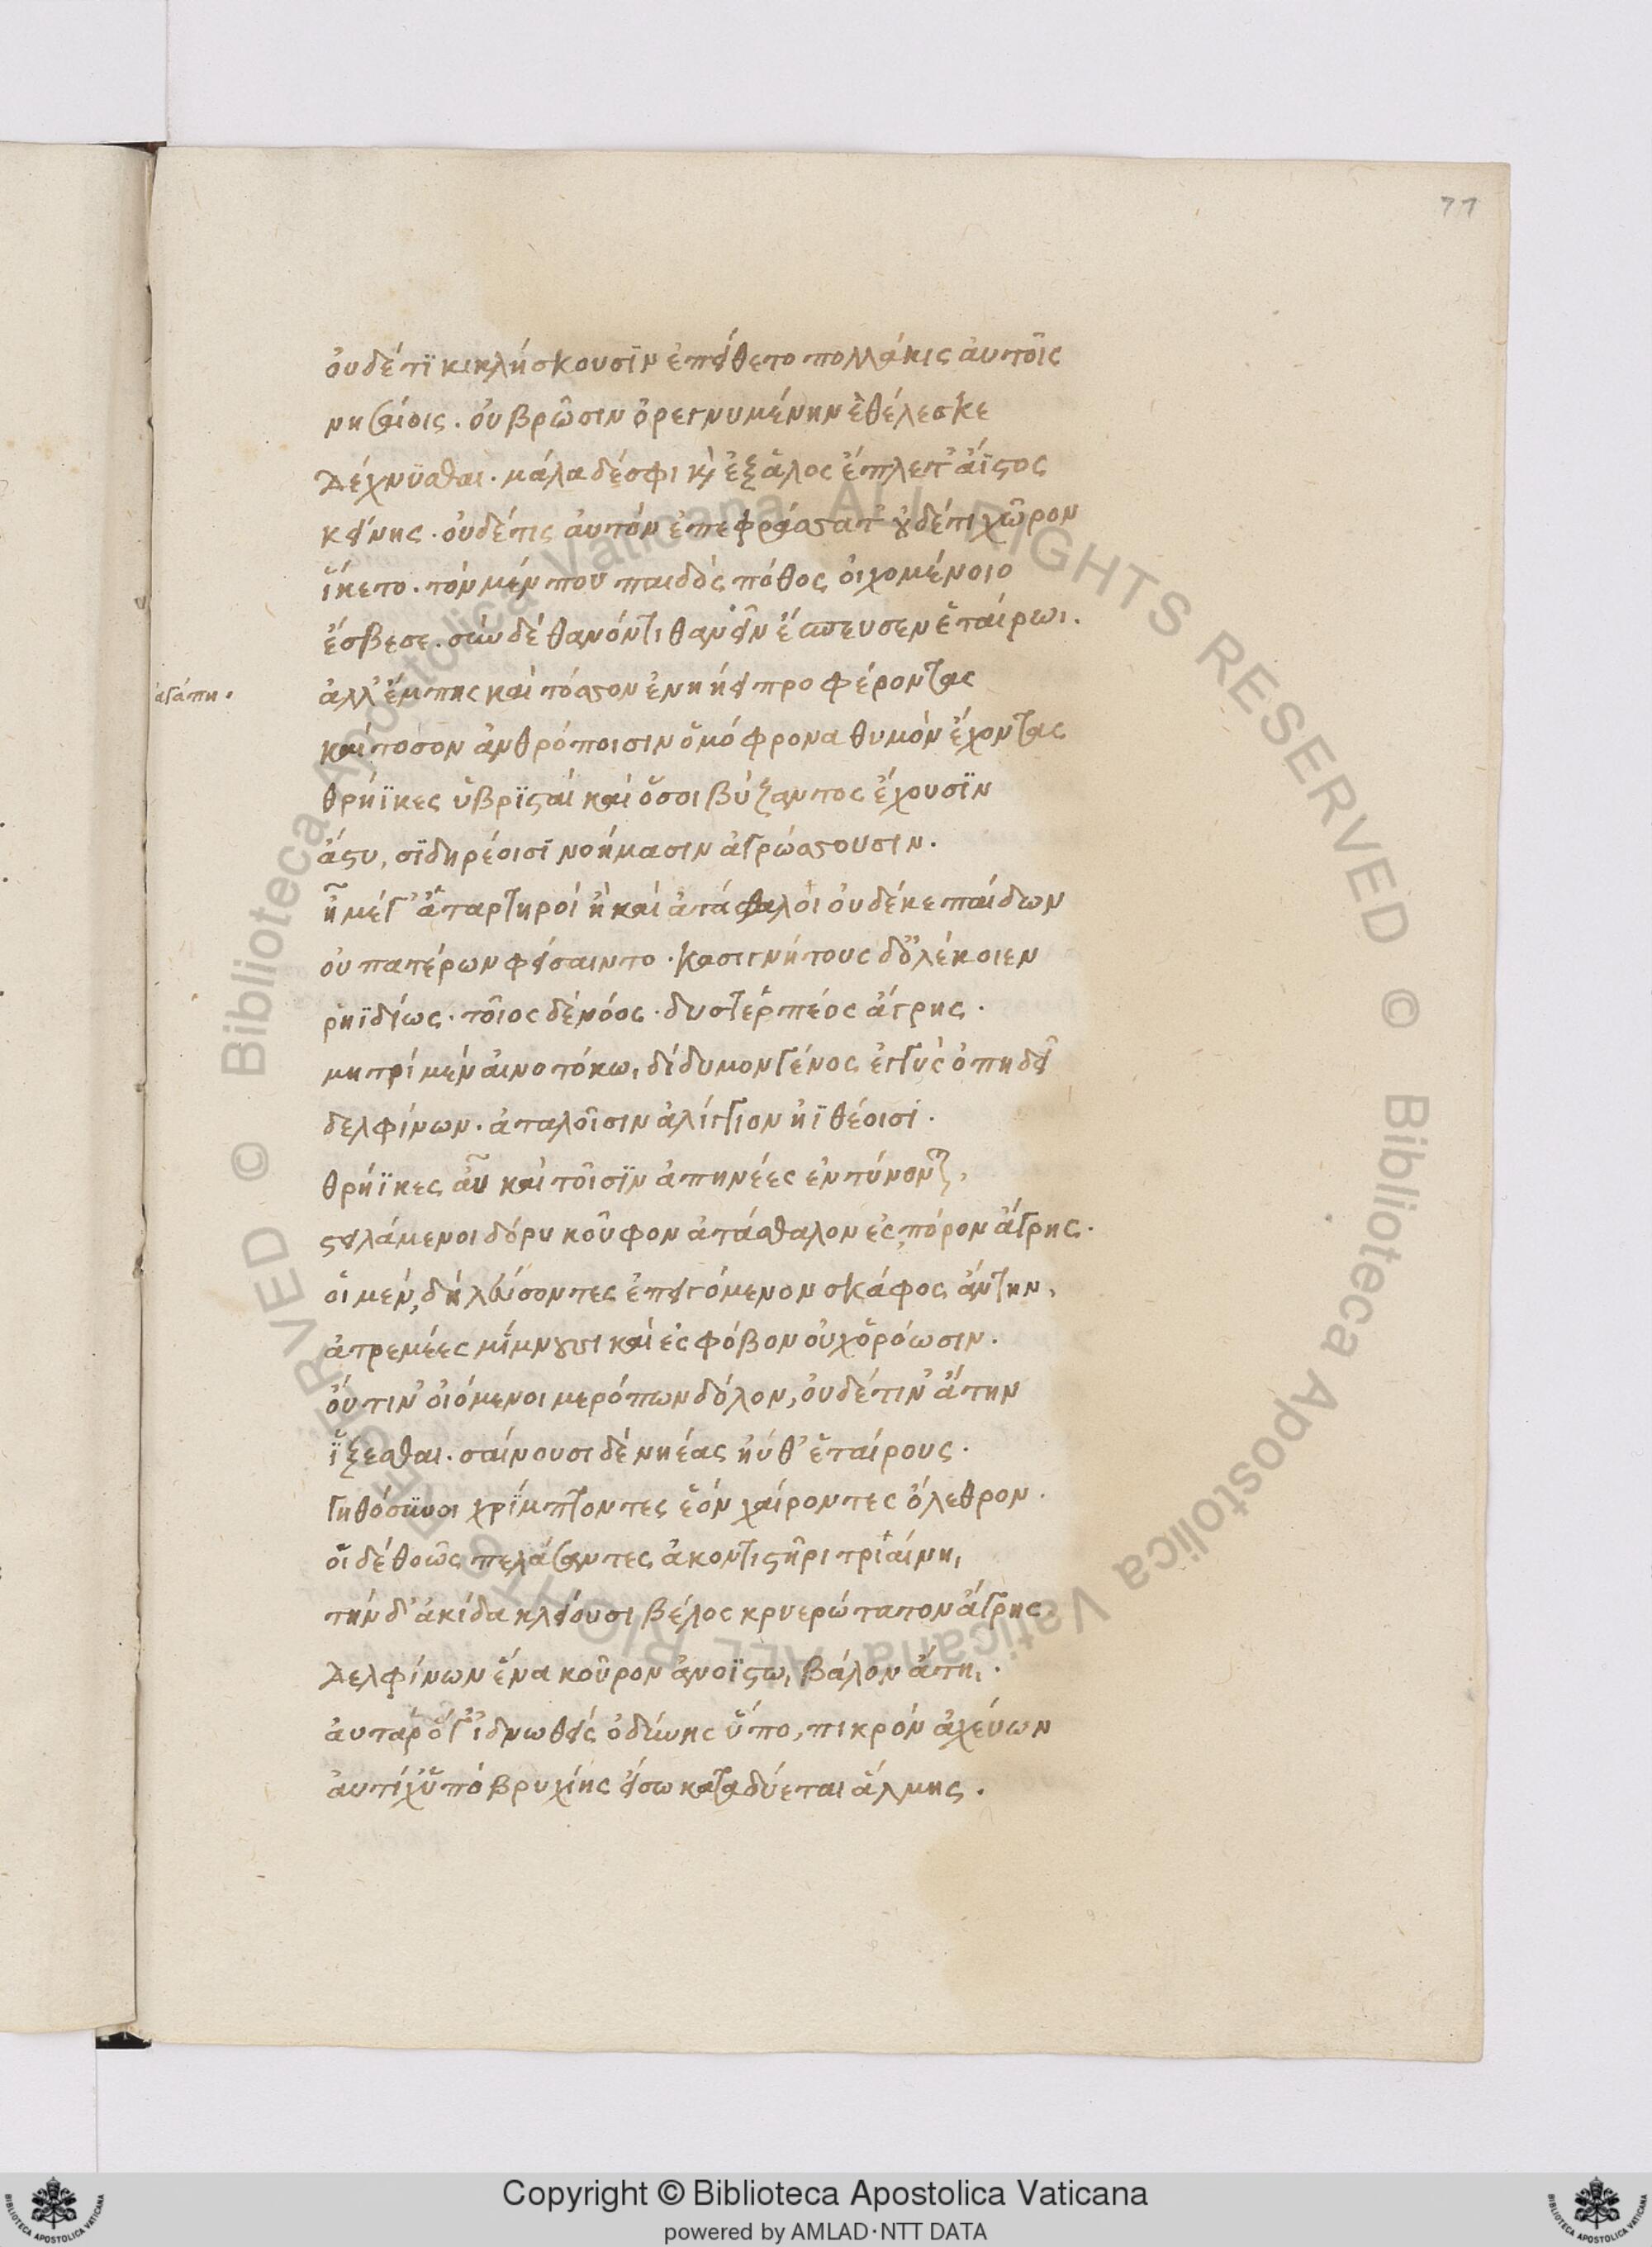 77
οὐδέτϊ κικλήσκουσϊν ἐπείθετο πολλάκις ἀυτοῖς
νησαίοις. οὐ βρῶσιν ὀρεγνυμένην ἐθέλεσκε
Δέχνϋσθαι. μάλα δέσφι κὶ ἐξάλος ἔπλετ' ἄϊστος
κείνης. οὐδέτις ἀυτὸν ἐπεφράσσατ' οὐδέτι χῶρον
ἵκετο. τὸν μέν που παιδὸς πόθος οἰχομένοιο
ἔσβεσε. σὺν δὲ θανόντι θανεῖν ἔσπευσεν ἑταίρωι.
ἀγάπη.
ἀλλ' ἔμπης καὶ τόσσον ἐνηείη προφέροντας
καὶ τοσον ἀνθρόποισιν ὁμόφρονα θυμὸν ἔχοντας
θρήϊκες ὑβρϊσταὶ καὶ ὅσοι βύζαντος ἔχουσϊν
ἄστυ, σϊδηρέοισϊ νοήμασιν ἀγρώσσουσιν.
ἦ μέγ' ἀταρτηροὶ ἠ καὶ ἀτάσθαλοι οὐδέκε παίδων
οὐ πατέρων φείσαιντο. κασιγνήτους δ' ὀλέκοιεν
ῥηϊδίως. τοῖος δὲ νόος. δυστερπέος ἄγρης.
μητρὶ μὲν αἰνοτόκω, δίδυμον γένος ἐγγὺς ὀπηδεῖ
δελφίνων. ἀταλοῖσιν ἀλίγκιον ἠϊθέοισϊ.
θρήϊκες ἀῦ καὶ τοῖσϊν ἀπηνέες ἐντύνονται,
στειλάμενοι δόρυ κοῦφον ἀτάσθαλον ἐς πόρον ἄγρης.
οἱ μὲν, δὴ λεύσοντες ἐπειγόμενον σκάφος ἄντην,
ἀτρεμέες μίμνουσι καὶ ἐς φόβον οὐχ ὁρόωσιν.
οὔτιν' οἰόμενοι μερόπων δόλον, οὐδέτιν' ἄτην
ἵξεσθαι. σαίνουσι δὲ νηέας ἠύθ' ἑταίρους.
Γηθόσυνοι χρίμπτοντες ἑὸν χαίροντες ὄλεθρον.
οἱ δὲ θοῶς πελάσαντες ἀκοντιστῆρι τριαίνη,
τήν δ' ἀκίδα κλείουσι βέλος κρυερώτατον ἄγρης.
Δελφίνων ἕνα κοῦρον ἀνοΐστω, βάλον ἄτη,.
ἀυτὰρ ὅγ' ἰδνωθεὶς ὀδύνης ὕπο, πικρὸν ἀχεύων
ἀυτίχ' ὑποβρυχίης εἴσω καταδύεται ἅλμης.
Copyright © Biblioteca Apostolica Vaticana
powered by AMLAD·NTT DATA